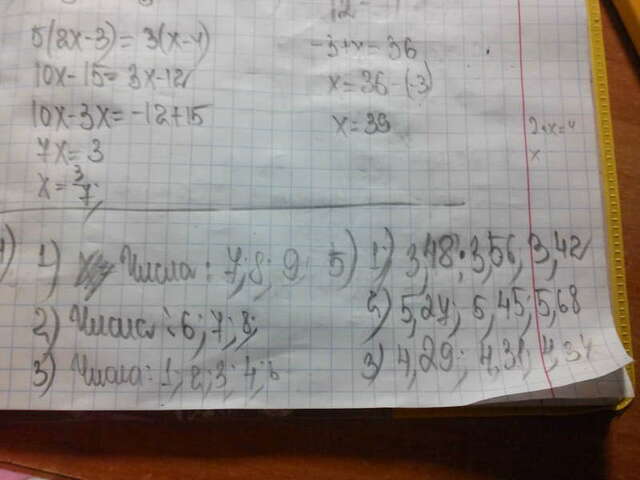 12
5(2x-3)=3(x-4)
10x-15=3x-12
10x-3x=-12+15
7x=3
x=3/7
-3+x=36
x=36-(-3)
x=39
2+x=4
x
1) Числа: 7; 8; 9
2) Числа: 6; 7; 8;
3) Числа: 1; 2; 3; 4; 5
5) 1) 3,48; 3,56; 3,42
2) 5,24; 5,45; 5,68
3) 4,29; 4,31; 4,34